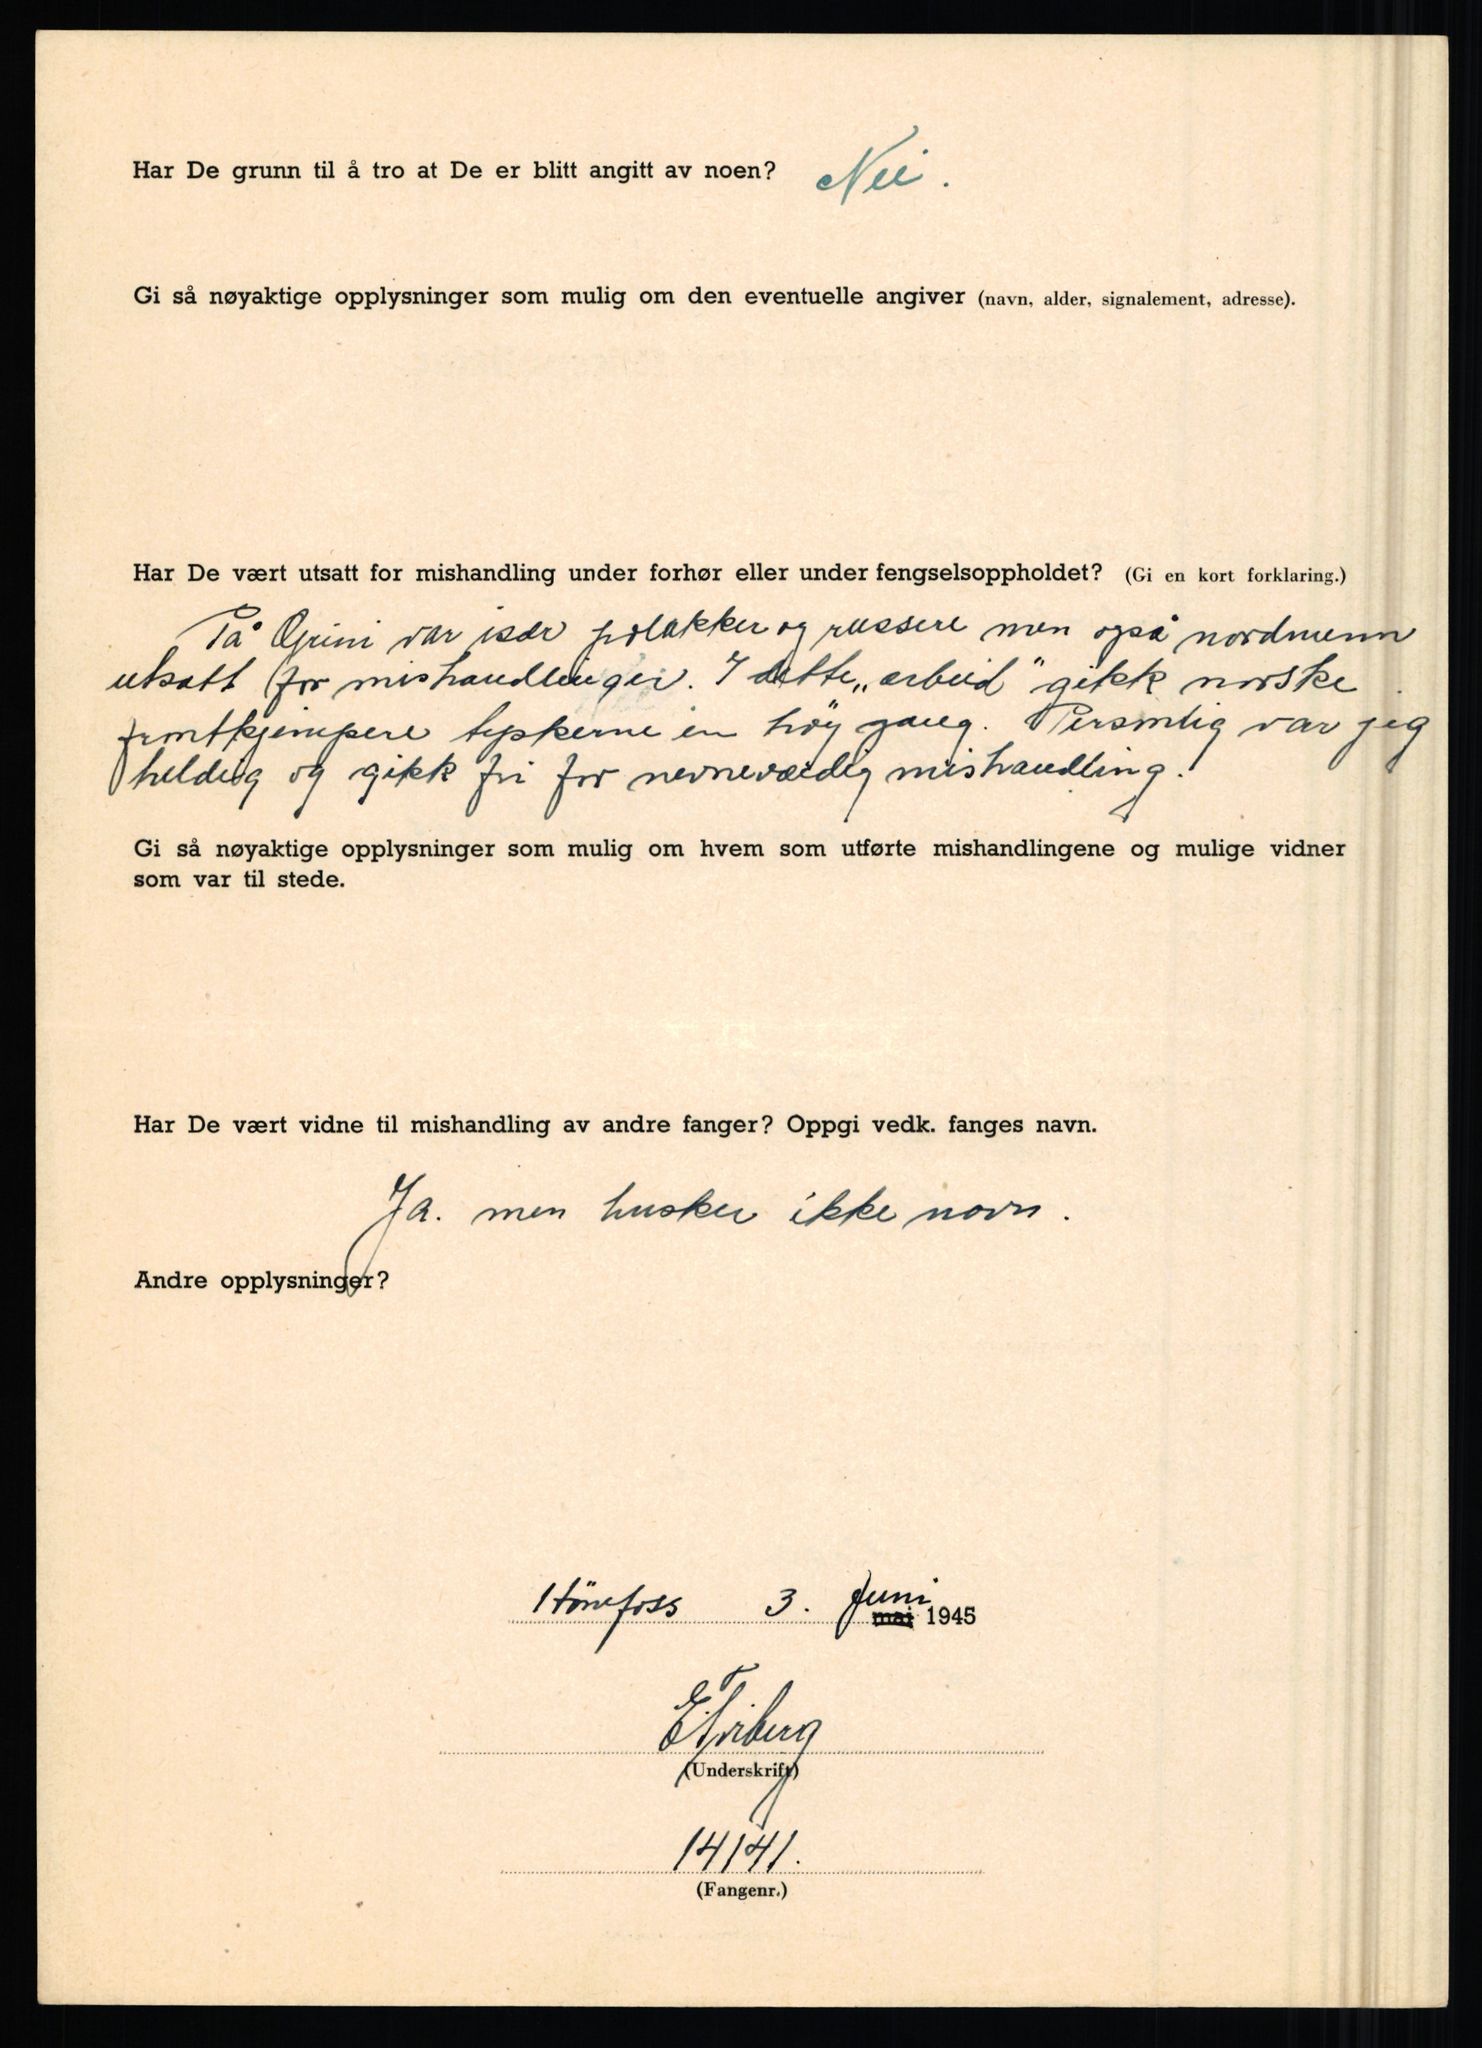 Har De grunn til å tro at De er blitt angitt av noen? Nei.
Gi så nøyaktige opplysninger som mulig om den eventuelle angiver (navn, alder, signalement, adresse).
Har De vært utsatt for mishandling under forhør eller under fengselsoppholdet? (Gi en kort forklaring.)
På Grini var især polakker og russere men også nordmenn
utsatt for mishandlinger. I dette „arbeid" gikk norske
frontkjempere tyskerne en höy gang. Personlig var jeg
heldig og gikk fri for nevneværdig mishandling.
Gi så nøyaktige opplysninger som mulig om hvem som utførte mishandlingene og mulige vidner
som var til stede.
Har De vært vidne til mishandling av andre fanger? Oppgi vedk. fanges navn.
Ja. men husker ikke navn.
Andre opplysninger?
Hönefoss 3. Juni
mai 1945
(Underskrift)
14141.
(Fangenr.)